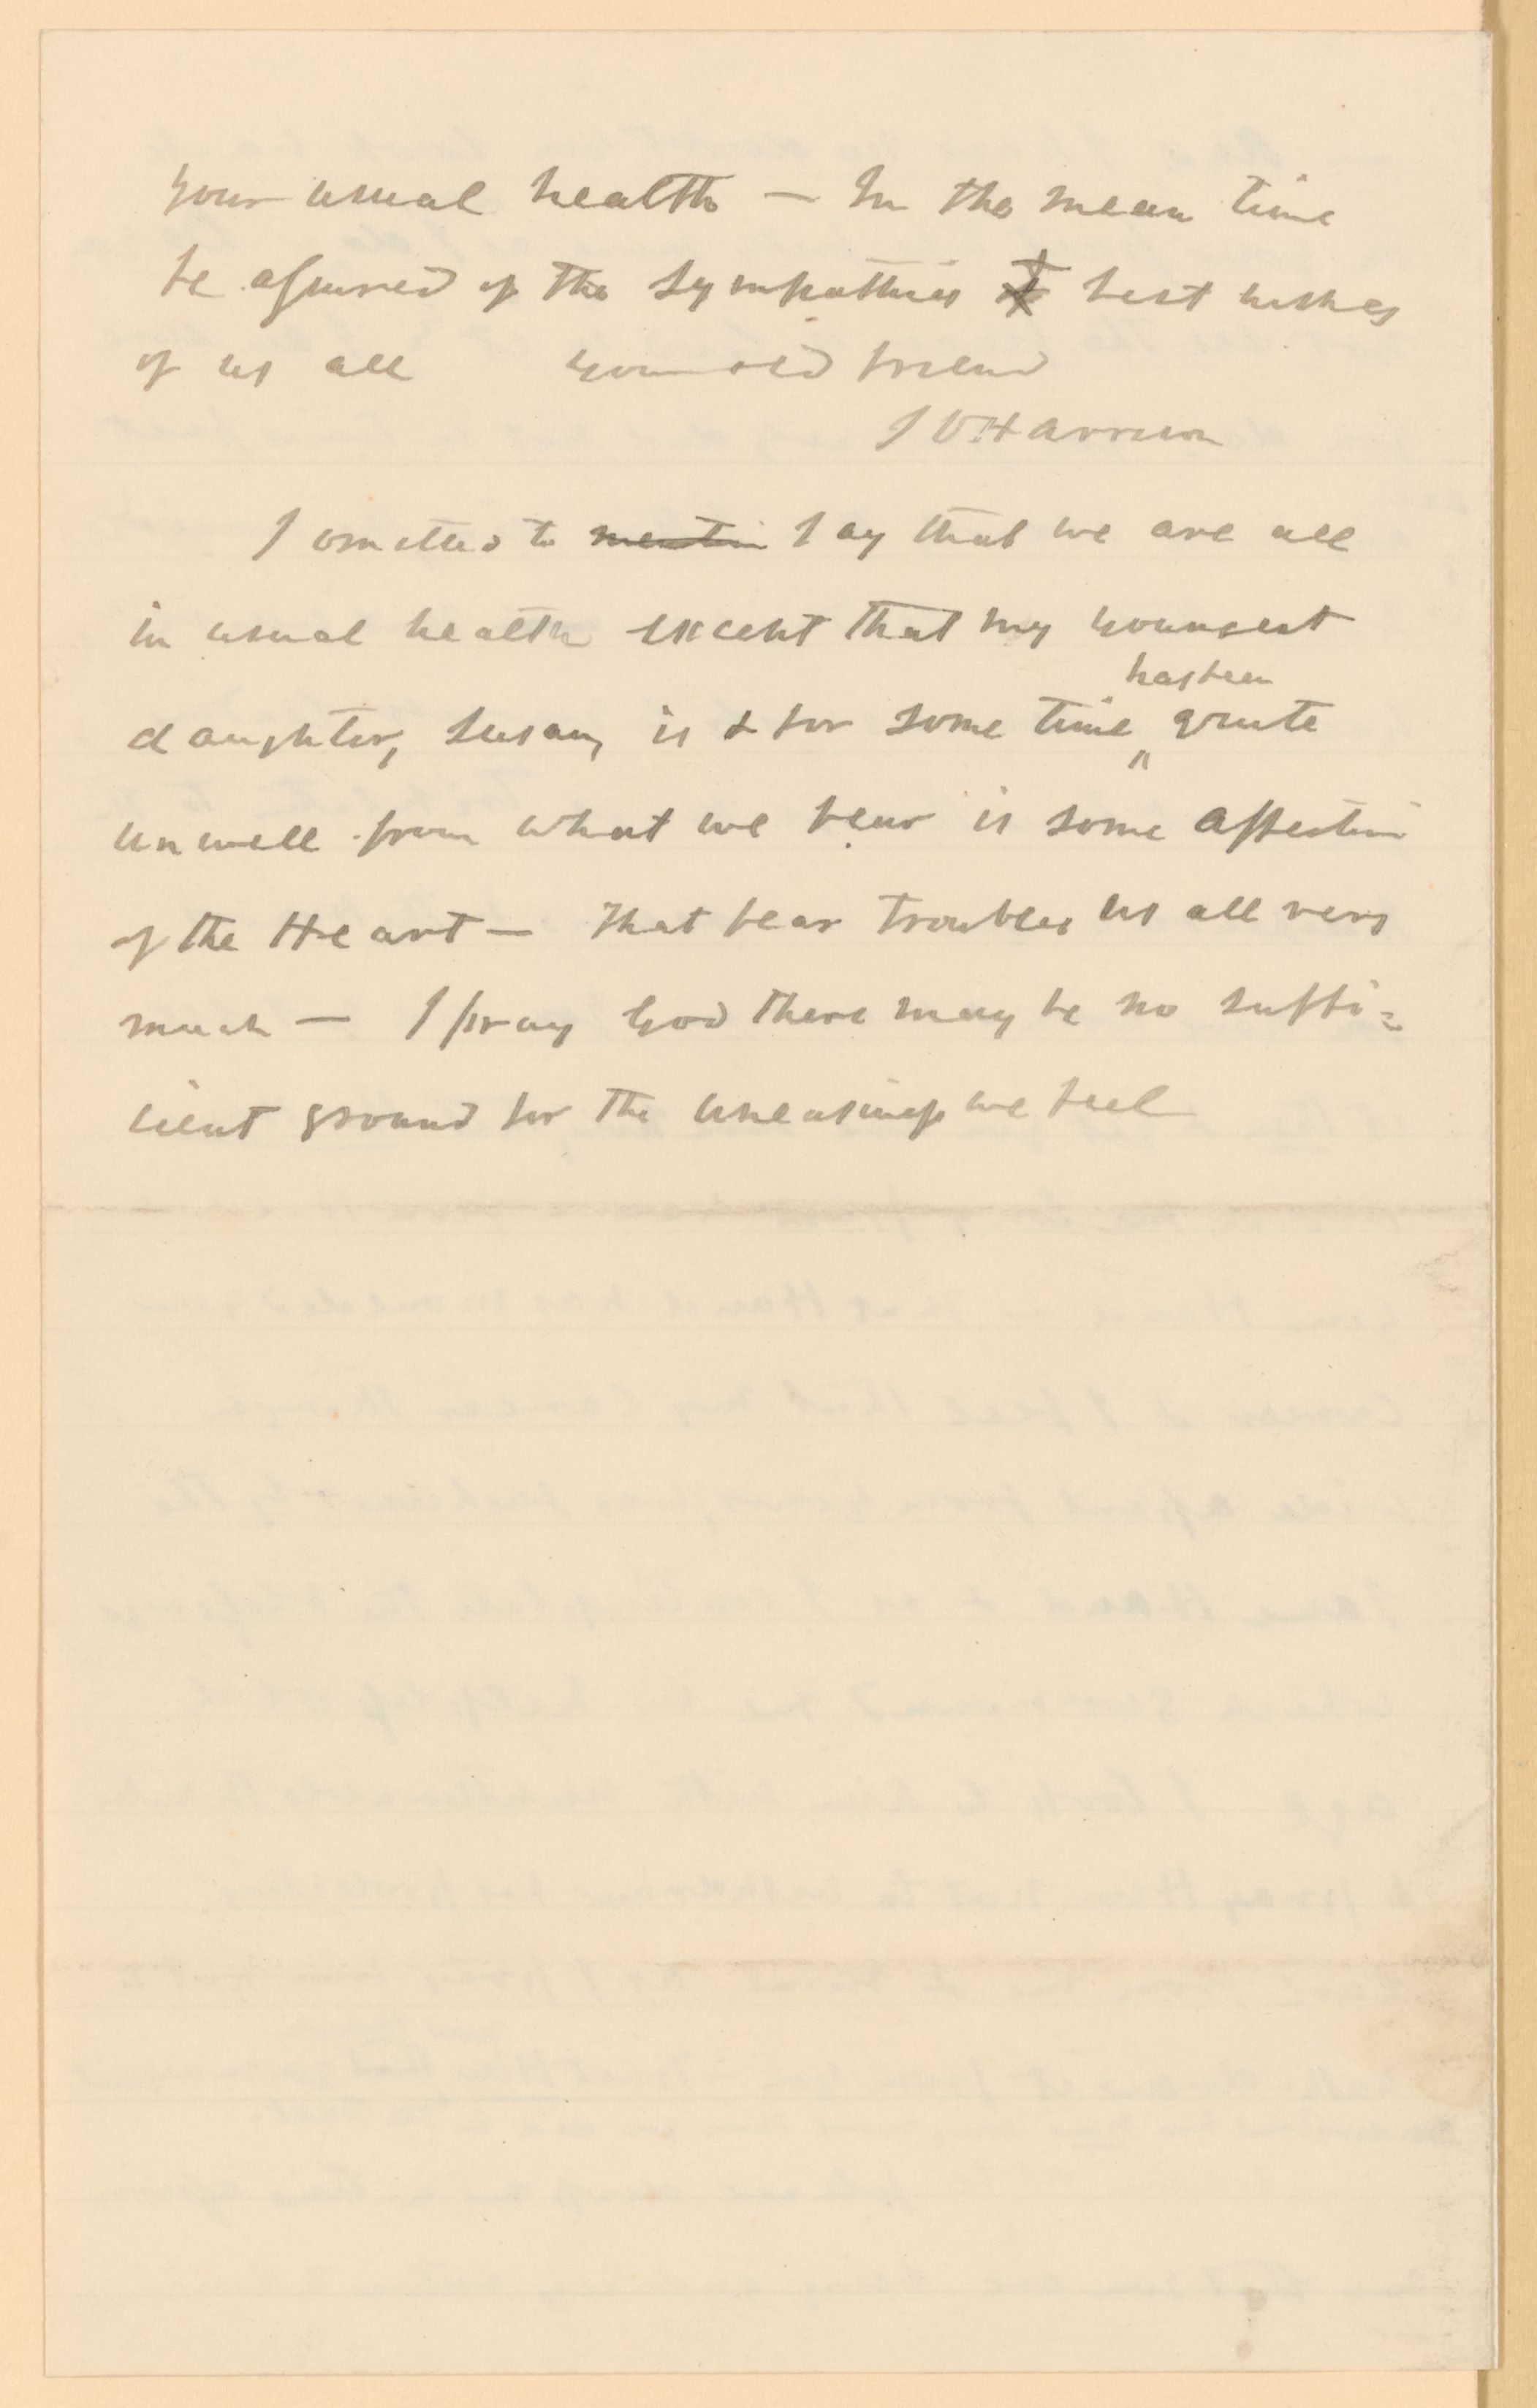 your usual health — In the mean time
be assured of the sympathies & best wishes
of us all your old friend
J O Harrison
I omitted to mention say that we are all
in usual health except that my youngest
daughter, Susan, is & for some time has been quite
unwell from what we fear is some affection
of the Heart — That fear troubles us all very
much — I pray God there may be no suffi=
cient ground for the uneasiness we feel